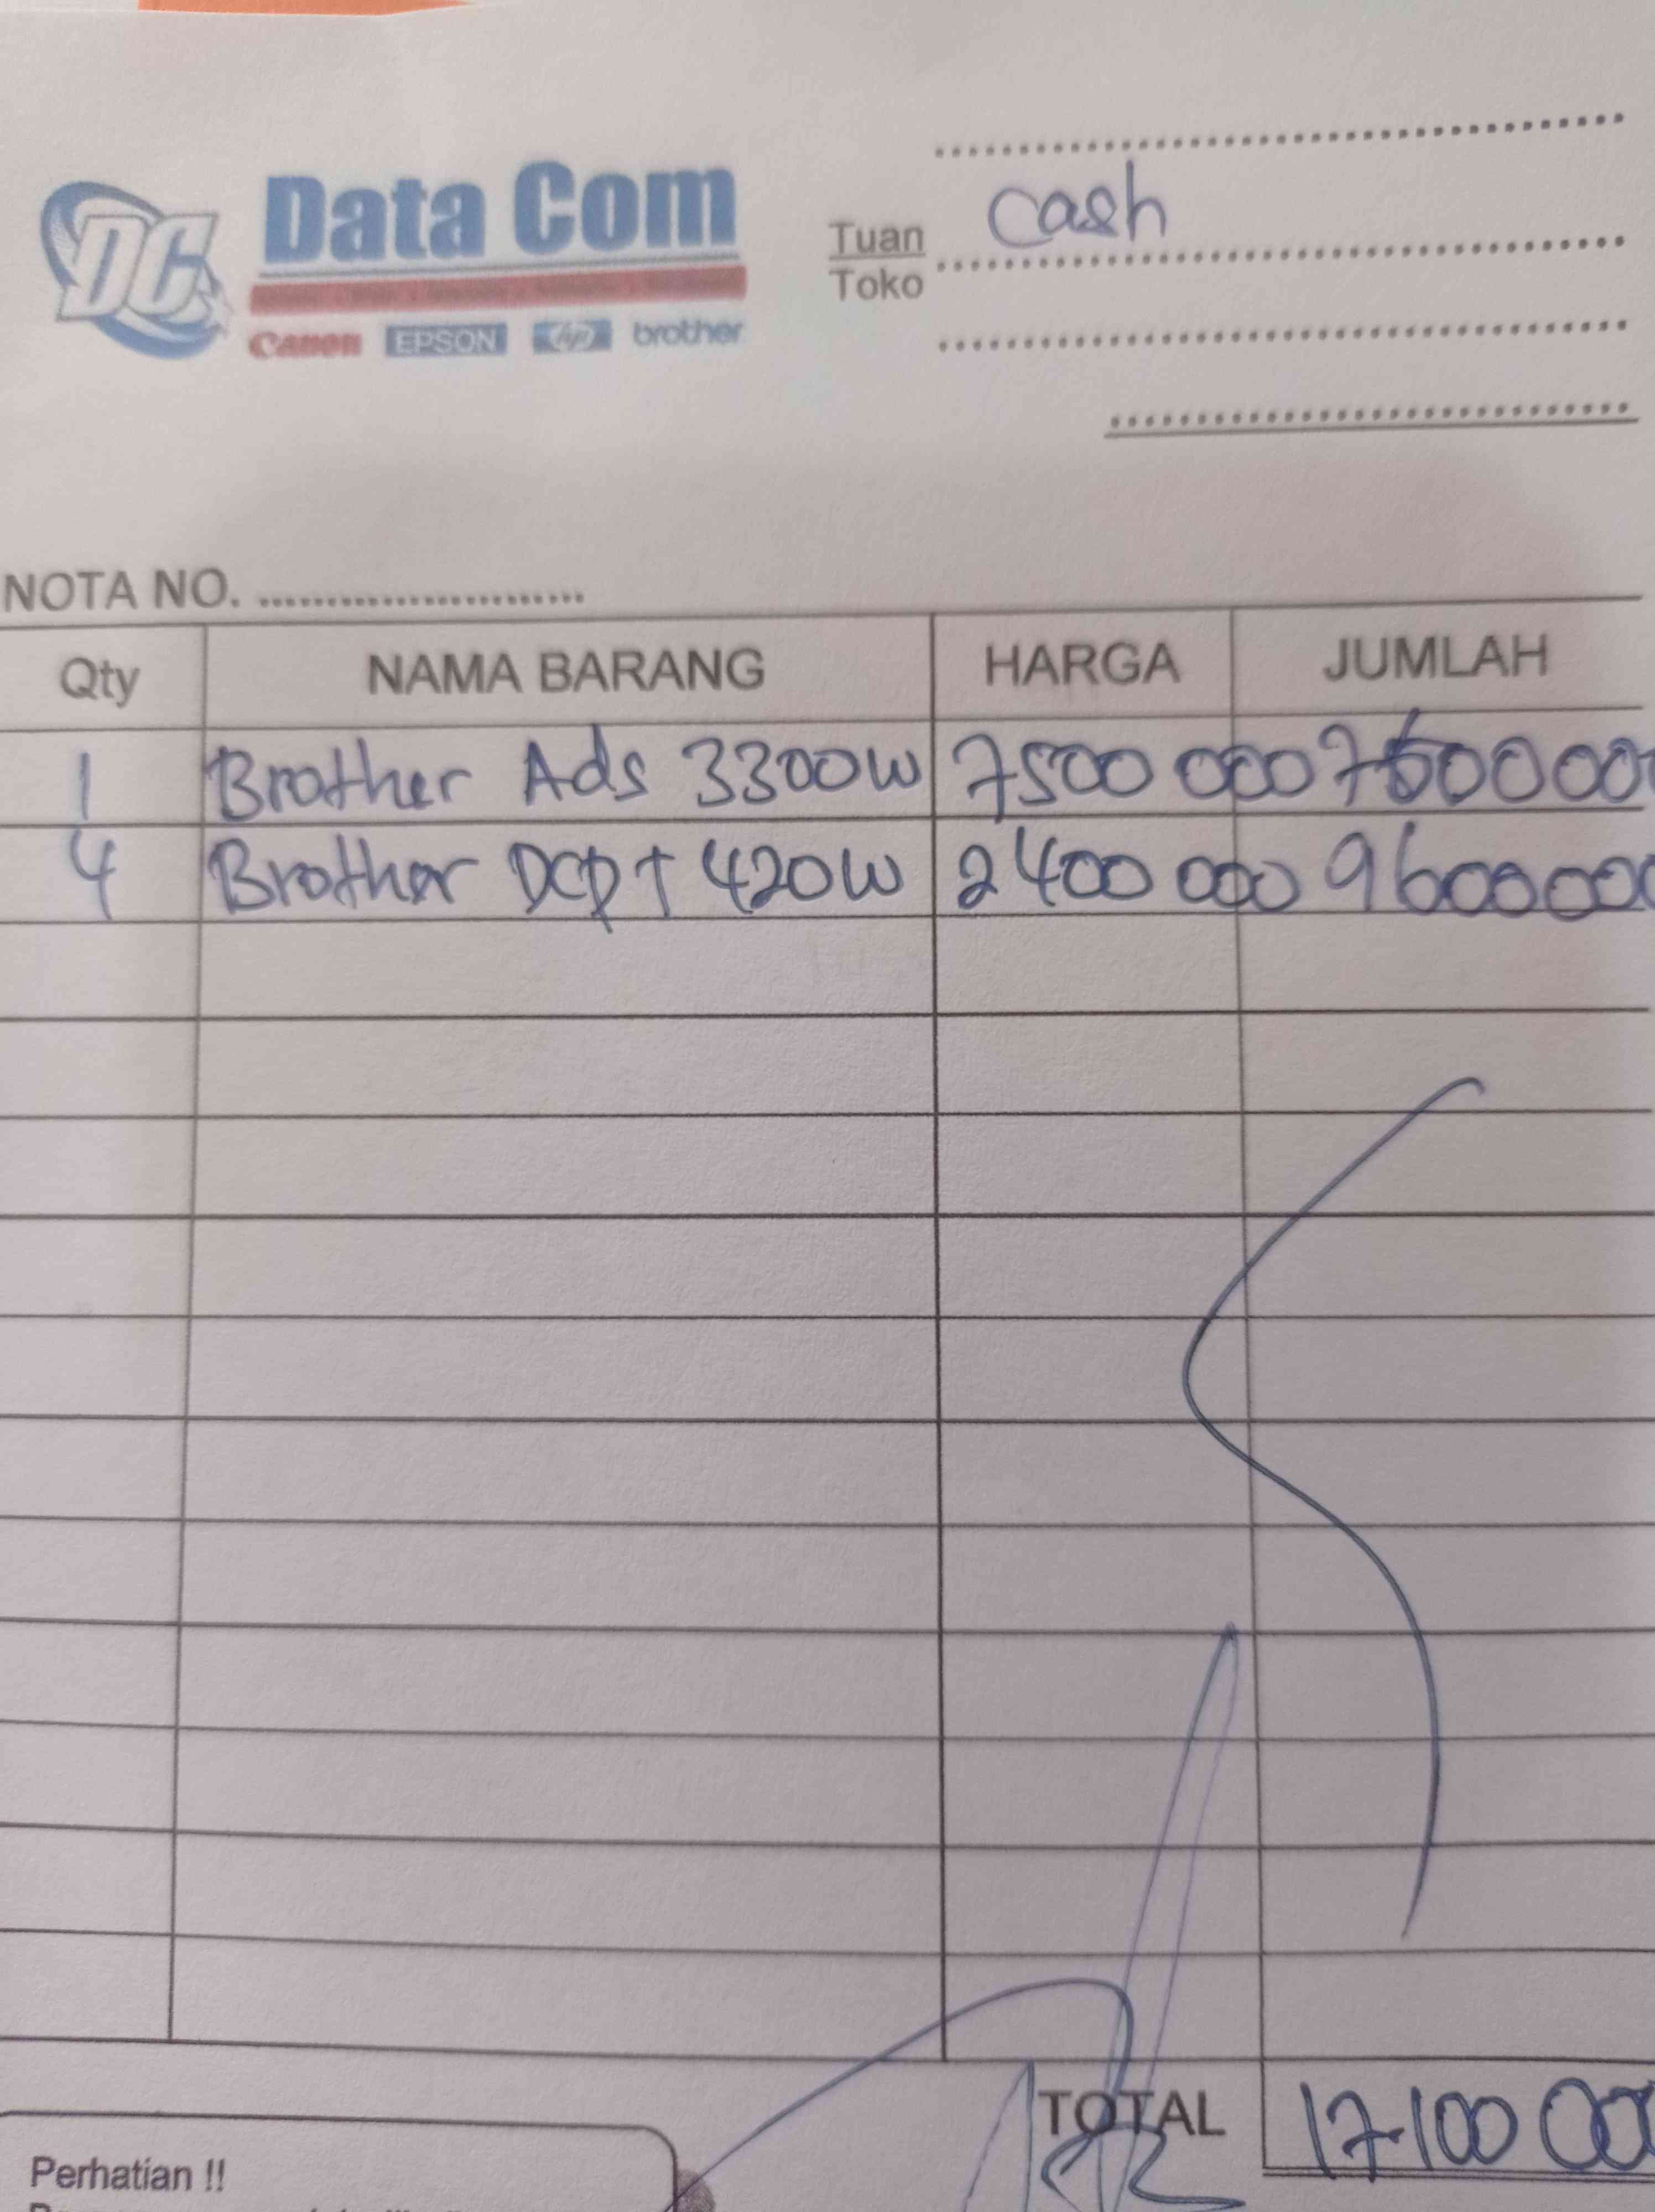 Data Com
DC
Canon EPSON hp brother
Tuan cash
Toko
NOTA NO.
Qty NAMA BARANG HARGA JUMLAH
1 Brother Ads 3300W 7500 000 7500000
4 Brother DCP T 420W 2400 000 9600000
TOTAL 17.100 000
Perhatian !!